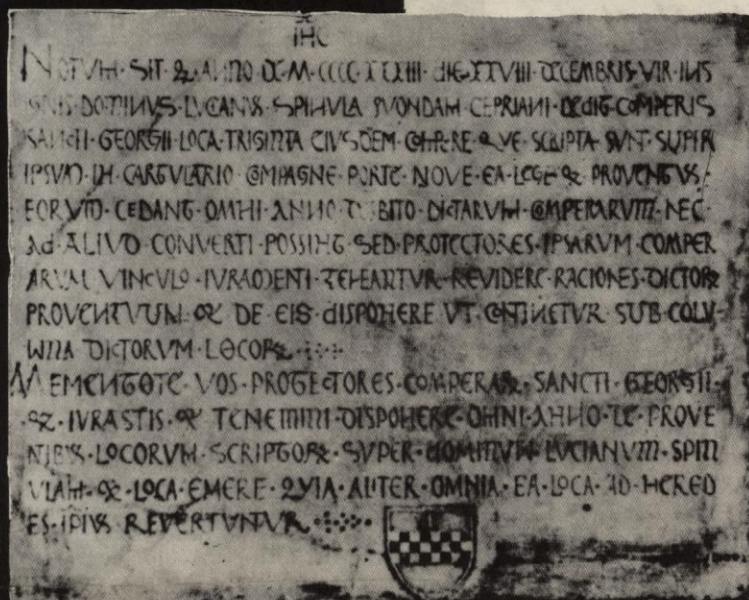 IHC
NOTVM · SIT · QZ · ANNO · DE · M · CCCC · XXXIII · DIE · XXVIII · DECEMBRIS · VIR · INS
GNIS · DOMINVS · LVCIANVS · SPINVLA · QVONDAM · CEPRIANI · DEDIT · COMPERIS
SANCTI · GEORGII · LOCA · TRIGINTA · EIVSDEM · COMPERE · QVE · SCRIPTA · SVNT · SVPER
IPSVM · IN · CARTVLARIO · COMPAGNE · PORTE · NOVE · EA · LEGE · QZ · PROVENTVS ·
EORVM · CEDANT · OMNI · ANNO · DEBITO · DICTARVM · COMPERARVM · NEC ·
AD · ALIVD · CONVERTI · POSSINT · SED · PROTECTORES · IPSARVM · COMPER
ARVM · VINCVLO · IVRAMENTI · TENEANTVR · REVIDERE · RACIONES · DICTORZ
PROVENTVVM · QZ · DE · EIS · DISPONERE · VT · CONTINETVR · SVB · COLV-
WNA · DICTORVM · LOCORZ
MEMENTOTE · VOS · PROTECTORES · COMPERARZ · SANCTI · GEORGII ·
· QZ · IVRASTIS · QZ · TENEMINI · DISPONERE · OMNI · ANNO · DE · PROVE
NTIBVS · LOCORVM · SCRIPTORZ · SVPER · DOMINVM · LVCIANVM · SPIN
VLAM · QZ · LOCA · EMERE · QVIA · ALITER · OMNIA · EA · LOCA · AD · HERED
ES · IPIVS · REVERTVNTVR